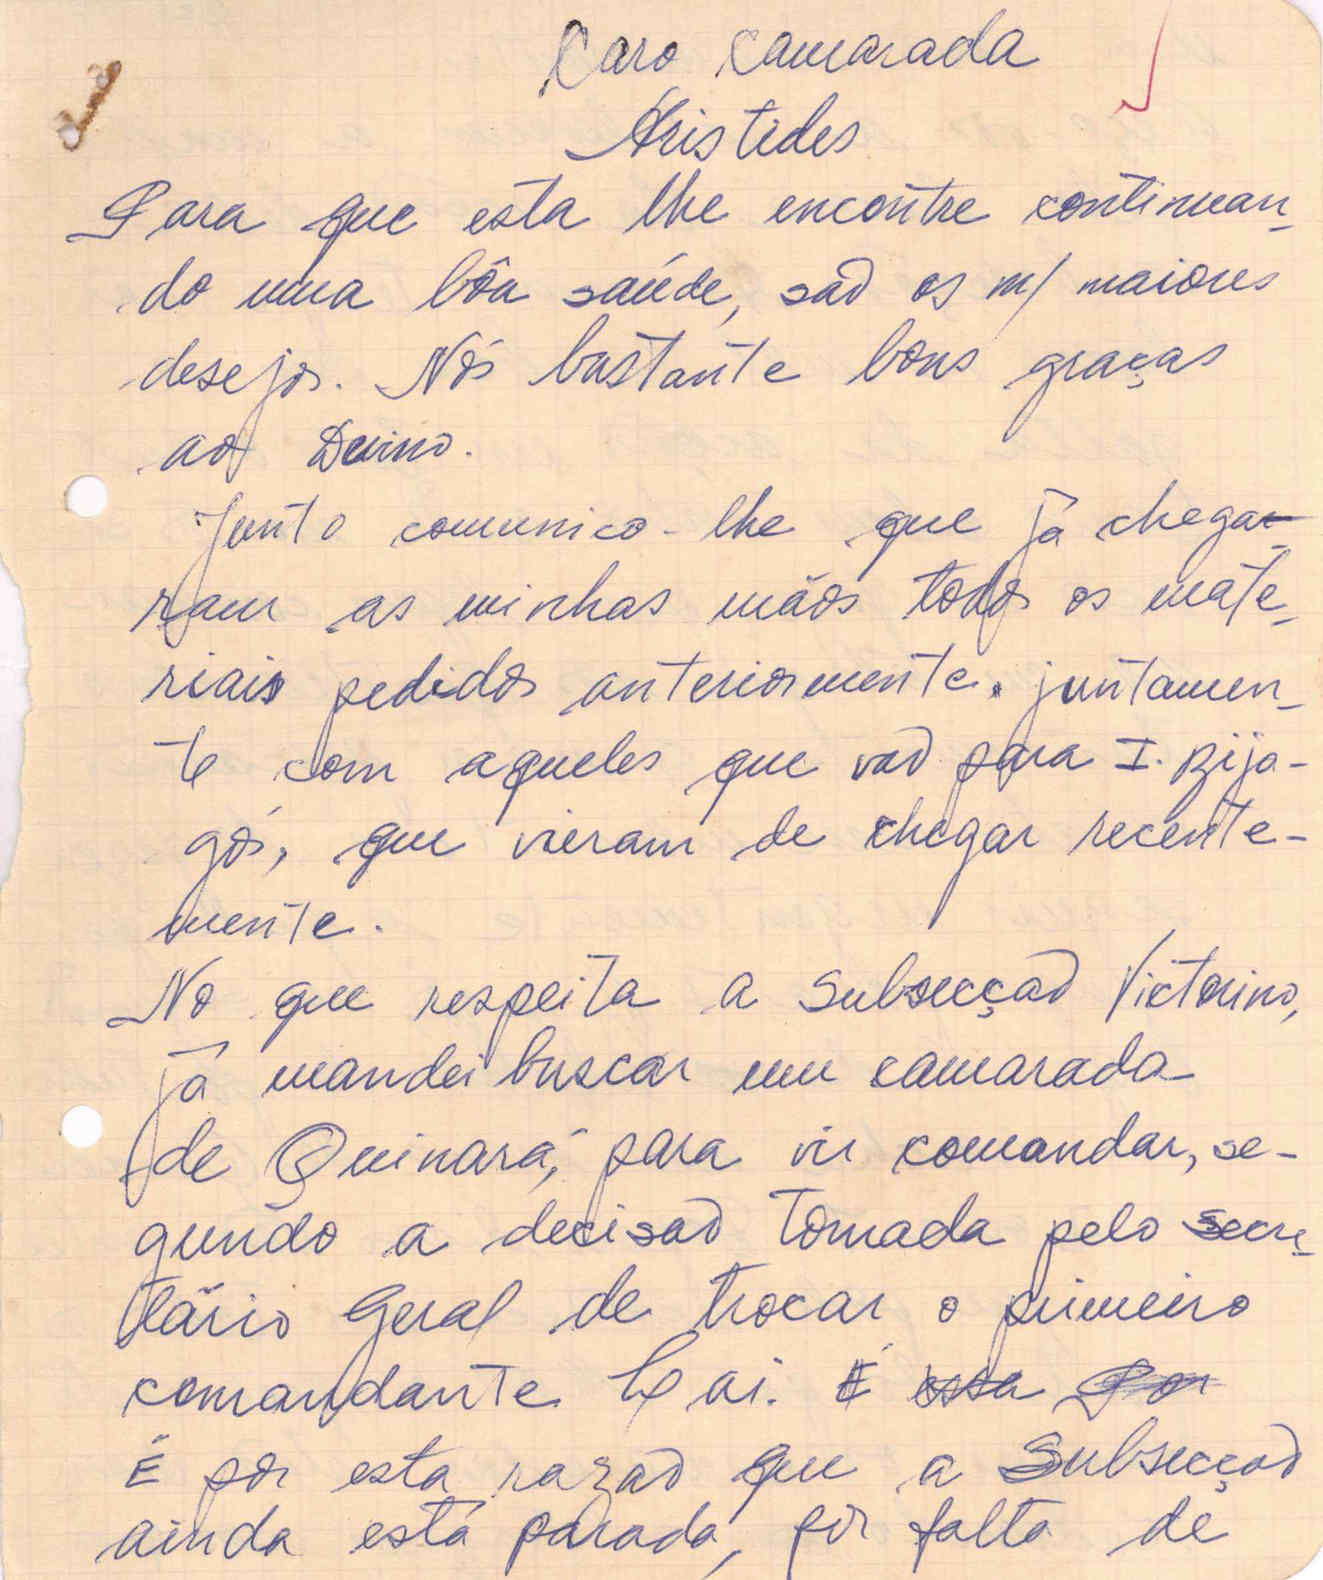 Caro Camarada
Aristides
Para que esta lhe encontre continuan-
do uma bôa saúde, são os m/ maiores
desejos. Nós bastante bons graças
ao Divino.
Junto comunico-lhe que já chega-
ram as minhas mãos todos os mate-
riais pedidos anteriormente. juntamen-
te com aqueles que vão para I. Bija-
gós, que vieram de chegar recente-
mente.
No que respeita a Subsecção Victorino,
já mandei buscar um camarada
de Quinará, para vir comandar, se-
gundo a decisão tomada pelo secre-
tário Geral de trocar o primeiro
comandante Lai. É essa Por
É por esta razão que a Subsecção
ainda está parada, por falta de